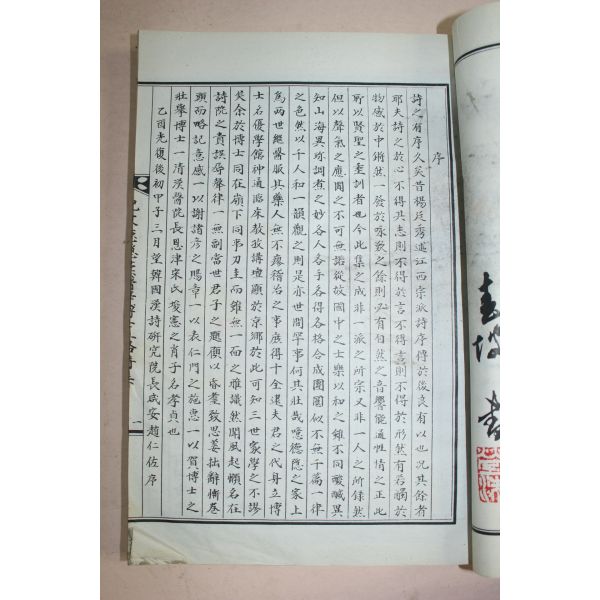 序
詩之有序久矣昔楊廷秀述江西宗派詩序傳於後良有以也况其餘者
耶夫詩之於心不得其志則不得於言不得言則不得於形然有若觸於
物感於中鏘然一發於咏歎之餘則必有自然之音響能適性情之正此
所以賢聖之垂訓者也今此集之成非一派之所宗又非一人之所錄然
但以聲氣之應聞之不可無諾從故國中之士樂以和之雖不同酸醎異
知山海異珍調煮之妙各人各手各得各格合成團圓似不無千篇一律
之色然以千人和一韻觀之則是亦世間罕事何其壯哉噫德隱之家上
爲兩世繼醫服其藥人無不瘳稽治之事庶得十全還夫君之代身立博
士名優學館神通臨床教授講壇顯於京鄕於此可知三世家學之不謬
矣余於博士同在嶺下同事刀圭而雖無一面之雅識然聞風起頓名在
詩院之責誤尋聲律一無副當世君子之題願以吞毫致思荽拙辭慚卷
頭而略記意感一以謝諸彦之賜章一以表仁門之施惠一以賀博士之
壯擧博士一清漢醫院長恩津宋氏埈憲之肖子名孝貞也
乙酉光復後初甲子三月望韓國漢詩硏究院長咸安趙仁佐序
一